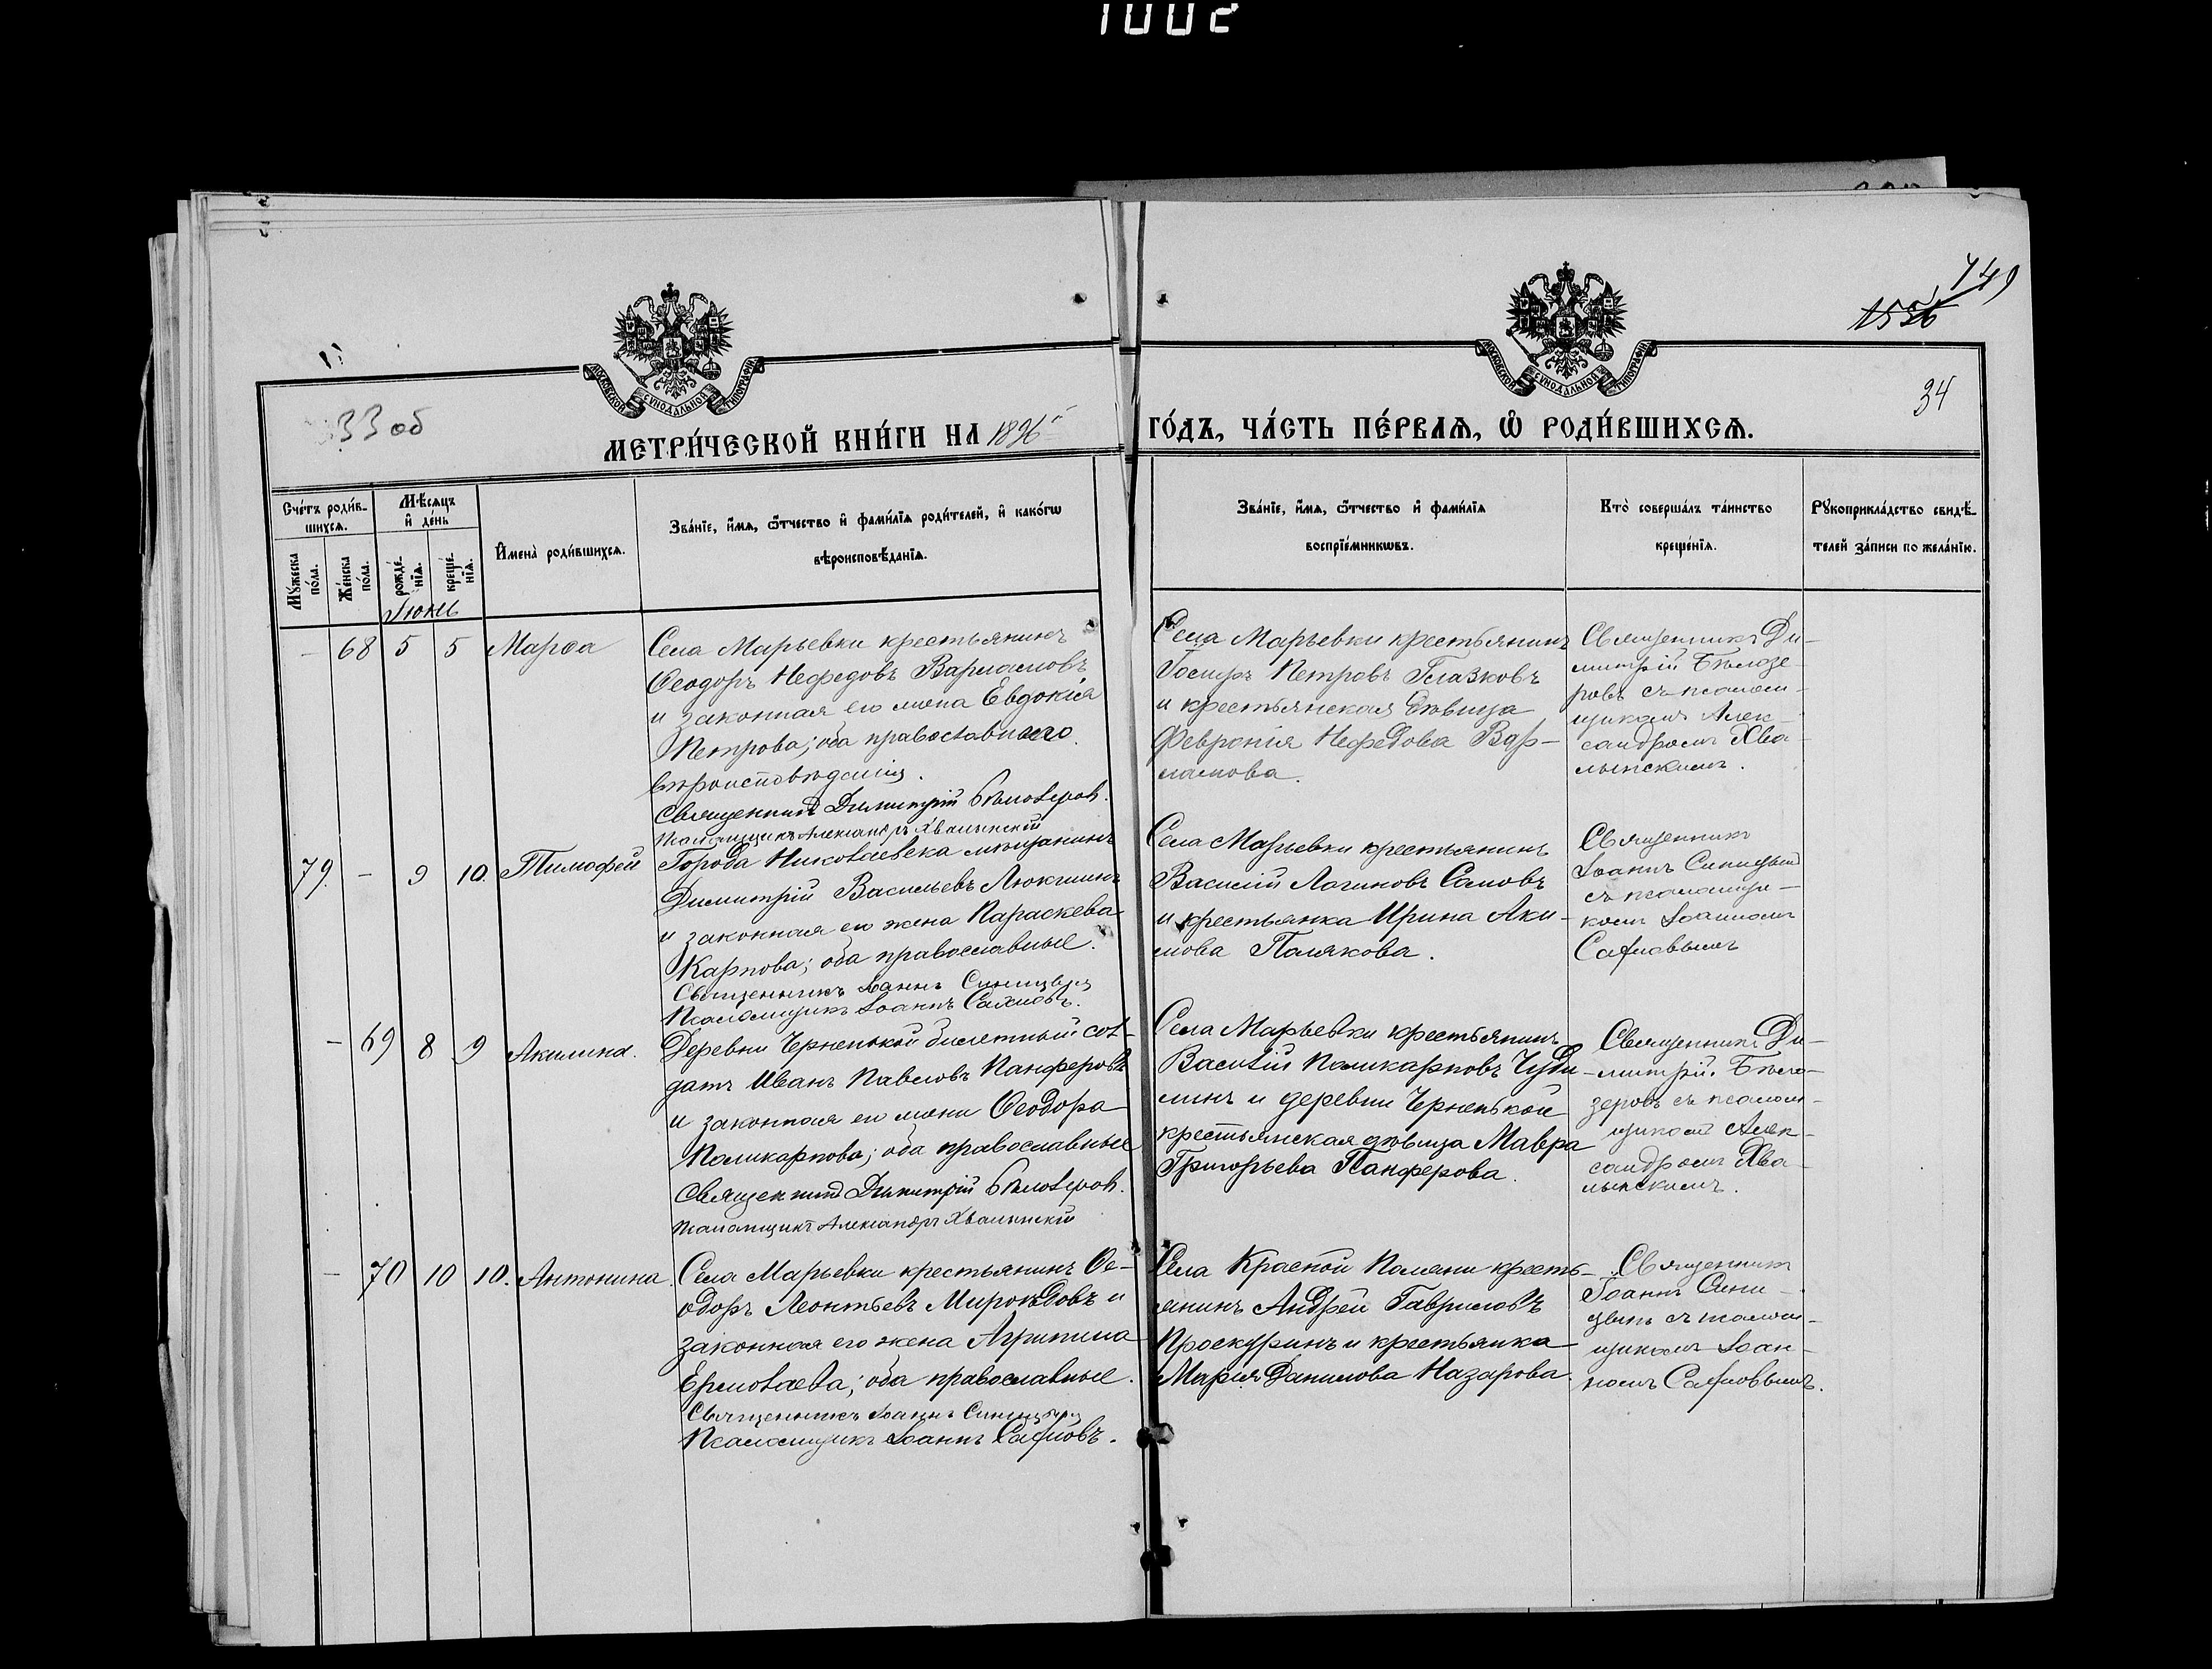 1002
749
1556
33 об
34
МОСКОВСКОЙ СѴНОДАЛЬНОЙ ТИПОГРАФІИ
МОСКОВСКОЙ СѴНОДАЛЬНОЙ ТИПОГРАФІИ
МЕТРИ́ЧЕСКОЙ КНИ́ГИ НА 1896 ГО́ДЪ, ЧА́СТЬ ПЕ́РВАѦ, Ѡ҆ РОДИ́ВШИХСѦ.
Сче́тъ роди́в-
шихсѧ.
Мꙋ́жеска
по́ла.
Же́нска
по́ла.
Мѣ́сѧцъ
и҆ де́нь
рожде́-
нїѧ.
креще́-
нїѧ.
И҆мена̀ роди́вшихсѧ.
Зва́нїе, и҆́мѧ, ѻ҆́тчество и҆ фами́лїѧ роди́телей, и҆ како́гѡ
вѣроисповѣ́данїѧ.
Зва́нїе, и҆́мѧ, ѻ҆́тчество и҆ фами́лїѧ
воспрїе́мникѡвъ.
Кто̀ соверша́лъ та́инство
креще́нїѧ.
Рꙋкоприкла́дство свидѣ́-
телей за́писи по жела́нїю.
Іюнь
– 68 5 5 Марѳа
Села Марьевки крестьянинъ
Ѳеодоръ Нефедовъ Варламовъ
и законная его жена Евдокія
Петрова; оба православнаго
вѣроисповѣданія.
Священникъ Димитрій Бѣлозеровъ.
Псаломщикъ Александръ Хвалынскій
Села Марьевки крестьянинъ
Петровъ Глазковъ
и крестьянская дѣвица
Февронія Нефедова Вар-
ламова.
Священникъ Ди-
митрій Бѣлозе-
ровъ съ псалом-
щикомъ Алек-
сандромъ Хва-
лынскимъ.
79. – 9 10. Тимофей
Города Николаевска мѣщанинъ
Димитрій Васильевъ Люкшинъ
и законная его жена Параскева
Карпова; оба православные.
Священникъ Іоаннъ Синицынъ
Псаломщикъ Іоаннъ
Села Марьевки крестьянинъ
Василій Логиновъ Сомовъ
и крестьянка Ирина Аки-
мова Полякова.
Священникъ
Іоаннъ Синицынъ
съ псаломщи-
комъ Іоанномъ
– 69 8 9 Акилина.
Деревни Черненькой билетный сол-
датъ Иванъ Павловъ Панферовъ
и законная его жена Ѳеодора
Поликарпова; оба православные
Священникъ Димитрій Бѣлозеровъ.
Псаломщикъ Александръ Хвалынскій
Села Марьевки крестьянинъ
Василій Поликарповъ Чуди-
линъ и деревни Черненькой
крестьянская дѣвица Мавра
Григорьева Панферова.
Священникъ Ди-
митрій Бѣло-
зеровъ съ псалом-
щикомъ Алек-
сандромъ Хва-
лынскимъ.
– 70 10 10. Антонина.
Села Марьевки крестьянинъ Ѳе-
одоръ Леонтьевъ Мироѣдовъ и
законная его жена Агрипина
Ермолаева; оба православные.
Священникъ Іоаннъ Синицынъ
Псаломщикъ Іоаннъ
Села Красной Поляны кресть-
янинъ Андрей Гавриловъ
Проскуринъ и крестьянка
Марія Данилова Назарова.
Священникъ
Іоаннъ Сини-
цынъ съ псалом-
щикомъ Іоан-
номъ